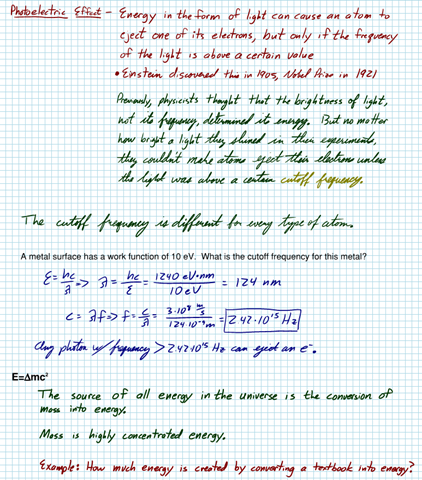 Photoelectric Effect - Energy in the form of light can cause an atom to
eject one of its electrons, but only if the frequency
of the light is above a certain value
• Einstein discovered this in 1905, Nobel Prize in 1921
Previously, physicists thought that the brightness of light,
not its frequency, determined its energy. But no matter
how bright a light they shined in their experiments,
they couldn't make atoms eject their electrons unless
the light was above a certain cutoff frequency.
The cutoff frequency is different for every type of atom.
A metal surface has a work function of 10 eV. What is the cutoff frequency for this metal?
E = hc/λ => λ = hc/E = 1240 eV·nm / 10 eV = 124 nm
c = λf => f = c/λ = 3·10⁸ m/s / 124·10⁻⁹ m = 2.42·10¹⁵ Hz
Any photon w/ frequency > 2.42·10¹⁵ Hz can eject an e⁻.
E=Δmc²
The source of all energy in the universe is the conversion of
mass into energy.
Mass is highly concentrated energy.
Example: How much energy is created by converting a textbook into energy?